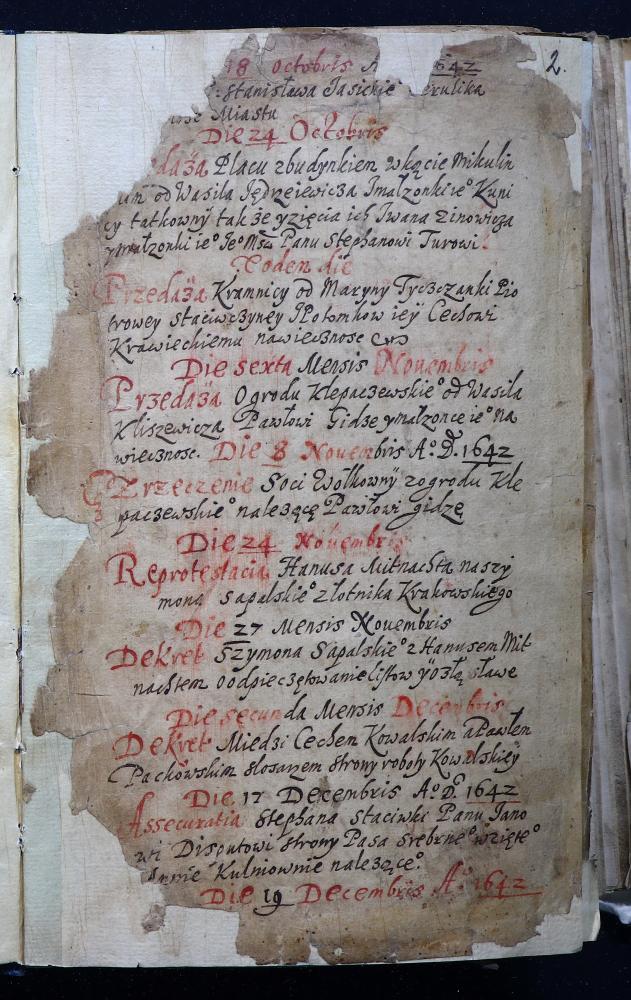 2.
18 Octobris A 1642
Stanisława Jasickie erulika
Miastu
Die 24 Octobris
daża Placu zbudynkiem wkącie Mikulin
od Wasila Jędrzeiewicza Imałzonki ie° Kuni
cy tatkowny takze yzięcia ich Iwana Zinowicza
ymałzonki ie° Je° Msci Panu Stephanowi Turowi
Eoden die
Przedaża Kramnicy od Maryny Tyszczanki Pio
trowey staciwczyney IPotomkow iey Cechowi
Krawieckiemu nawiecznosc
Die sexta Mensis Nouembris
Przedaża Ogrodu Klepaczewskie° od Wasila
Kliszewicza Pawłowi Gidze ymałzonce ie° na
wiecznosc. Die 8 Nouembris A° D. 1642
Zrzeczenie Soci Wołkowny zogrodu Kle
paczewskie° należącę Pawłowi gidzę
Die 24 Nouembris
Reprotestacia Hanusa Mitnachta naszy
mona Sapalskie° złotnika Krakowskiego
Die 27 Mensis Nouembris
Dekret Szymona Sapalskie° z Hanusem Mit
nachtem oodpieczętowanie listow yozłą sławe
Die secunda Mensis Decembris
Dekret Miedzi Cechem Kowalskim aPawłem
Packowskim slosarzem strony roboty Kowalskiey
Die 17 Decembris A° D. 1642
Assecuratia Stephana Staciwki Panu Jano
wi Disputowi strony Pasa srebrne° wzięte°
Annie Kulniownie należącę°
Die 19 Decembris A° 1642